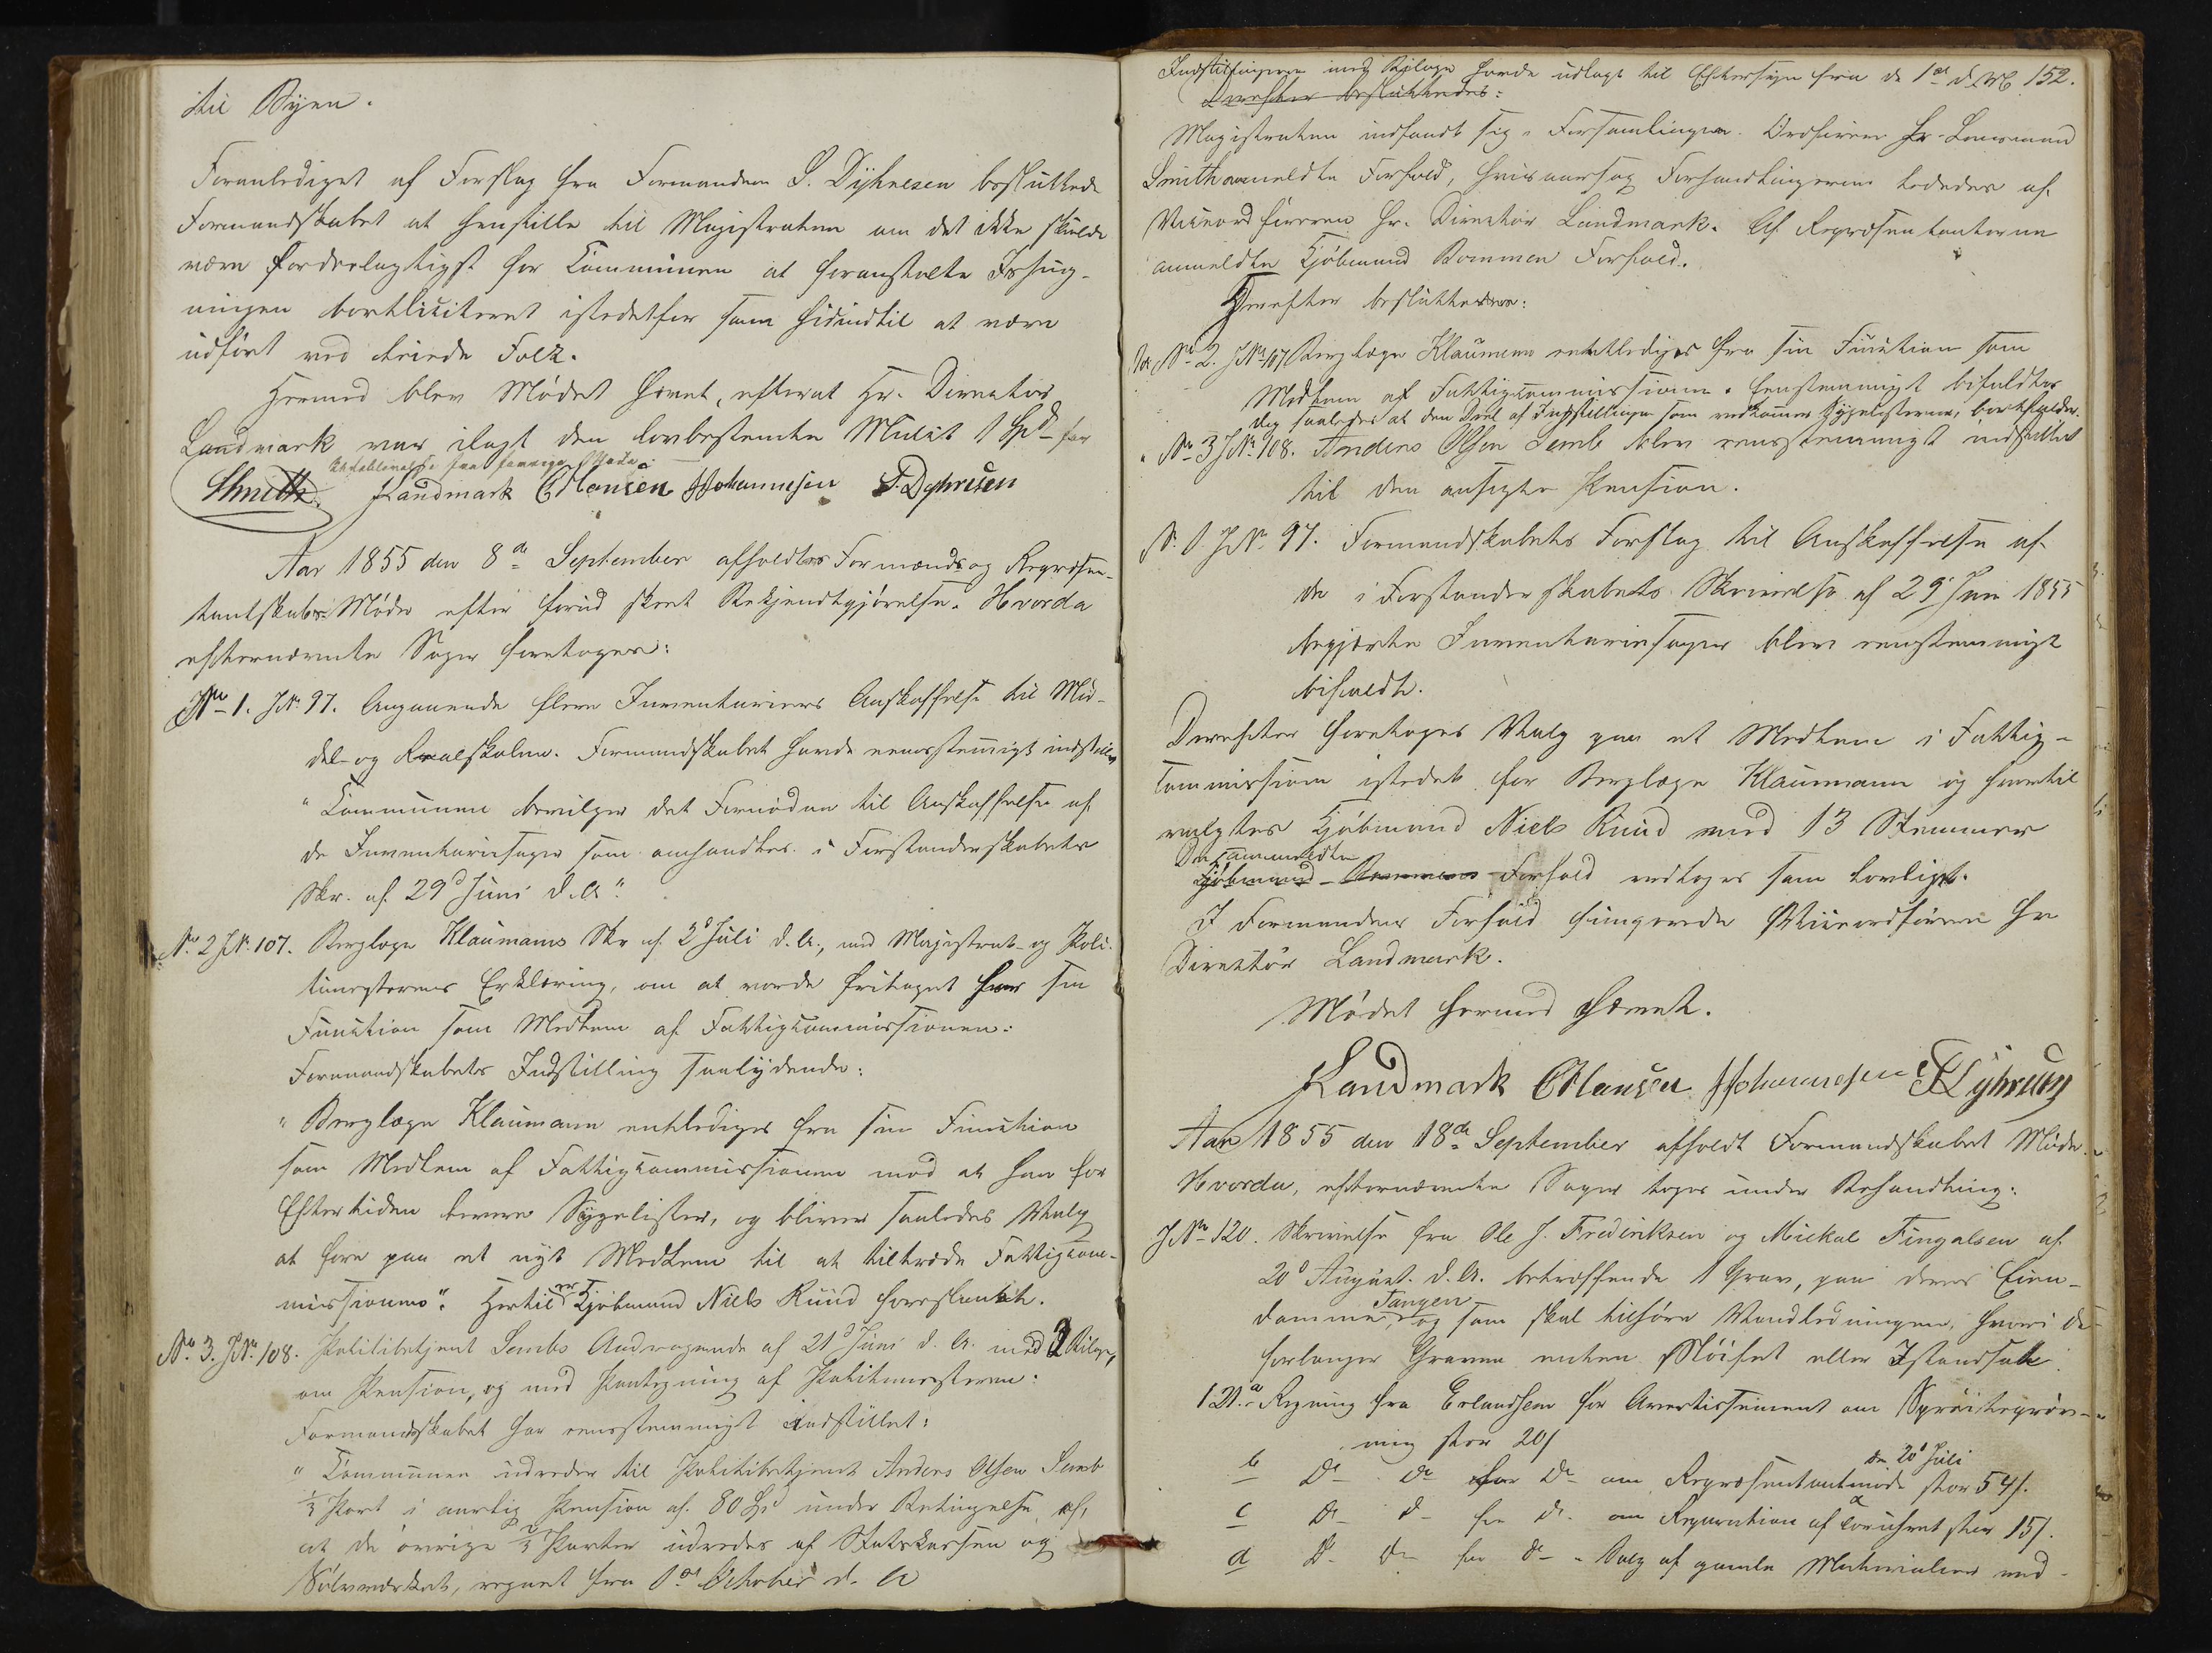 til Byen.
Foranlediget af Forslag fra Formanden S. Dyhresen besluttede
Formandskabet at henstille til Magistraten om det ikke skulde
være fordeelagtigst for Communen at foranstalte Ishug-
ningen bortliciteret istedetfor som hidindtil at være
udført ved leiede Folk.
Hermed blev Mødet hævet, efterat Hr. Directør
Landmark var ilagt den lovbestemte Mulct 1 Spd for
Udeblivelse fra
Smith Landmark CHansen Johannesen S. Dyhresen
Aar 1855 den 8de September afholdtes Formænds og Repræsen-
tantskabs Møde efter forud skeet Bekjendtgjørelse. Hvorda
efternævnte Sager foretoges:
No 1. JNr. 97. Angaaende flere Inventariers Anskaffelse til Mid-
del- og Realskolen. Formandskabet havde eenstemigt indstillet
"Communen bevilger det Fornødne til Anskaffelse af
de Inventariesager som omhandles i Forstanderskabets
Skr. af 29d Juni d.A."
No. 2 JNr. 107. Berglæge Klaumanns Skr. af 2d Juli d.A., med Magistrat- og Poli-
timesterens Erklæring, om at vorde fritaget for sin
Function som Medlem af Fattigcommissionen:
Formandskabets Indstilling saalydende:
"Berglæge Klaumann entlediges fra sin Function
som Medlem af Fattigcommissionen mod at han for
Eftertiden leverer Sygelister, og bliver saaledes Valg
at føre paa et nyt Medlem til at tiltræde Fattigcom-
missionen". Hertil er Kjøbmand Niels Ruud foreslaaet.
No. 3. JNr. 108. Politibetjent Sembs Andragende af 21d Juni d.A. med 2 Bilage,
om Pension, og med Paategning af Politimesteren:
Formandskabet har eenstemmigt indstillet:
"Communen udreder til Politibetjent Anders Olsen Semb
1/3 Part i aarlig Pension af 80 Spd under Betingelse af,
at de øvrige 2/3 Parter udredes af Statskassen og
Sølvværket, regnet fra 1ste October d. A
Indstillingerne med Bilage havde udlagt til Eftersyn fra de 1ste d. M. 152.
Derefter besluttedes:
Magistraten indfandt sig i Forsamlingen. Ordføreren Hr. Lensmand
Smith anmeldte Forfald, hvisaarsag Forhandlingerne lededes af
Viceordføreren Hr. Directør Landmark. Af Repræsentanterne
anmeldte Kjøbmand Bommen Forfald.
Derefter besluttedes:
No 2. JNr. 107 Berglæge Klaumann entlediges fra sin Function som
Medlem af Fattigcommissionen. Eenstemmigt bifaldtes
dog saaledes at den Deel af Indstillingen som vedkommer Sygelisterne, bortfalder.
No 3 JNr. 108. Anders Olsen Semb blev eenstemmigt indstillet
til den ansøgte Pension.
No. 1 JNr. 97. Formandskabets Forslag til Anskaffelse af
de i Forstanderskabets Skrivelse af 29 Juni 1855
begjærte Inventariesager blev eenstemmigt
bifaldt.
Derefter foretoges Valg paa et Medlem i Fattig-
commission istedet for Berglæge Klaumann og hertil
valgtes Kjøbmand Niels Ruud med 13 Stemmer
Det anmeldte
Kjøbmand Bommens Forfald vedtoges som lovligt.
I Formandens Forfald fungerede Viceordføreren Hr
Directør Landmark.
Mødet hermed hævet.
Landmark CHansen Johannesen SDyhresen
Aar 1855 den 18de September afholdt Formandskabet Møde.
Hvorda, efternævnte Sager toges under Behandling:
JNr 120. Skrivelse fra Ole J. Frederiksen og Mickal Tingalsen af
20d August d.A. betræffende 1 Grav, paa deres Eien-
domme, Tangen og som skal tilhøre Vandledningen, hvori de
forlanger Graven enten sløifet eller Istandsatt.
121.a Regning fra Erlandsen for Avertissement om Sprøiteprøv-
ning stor 20 s
b Do Do for Do om Repræsentantmøde den 20d Juli stor 54 s.
c Do Do for Do om Reparation af stor 15 s.
d Do Do for Do " Salg af gamle Materialier ved